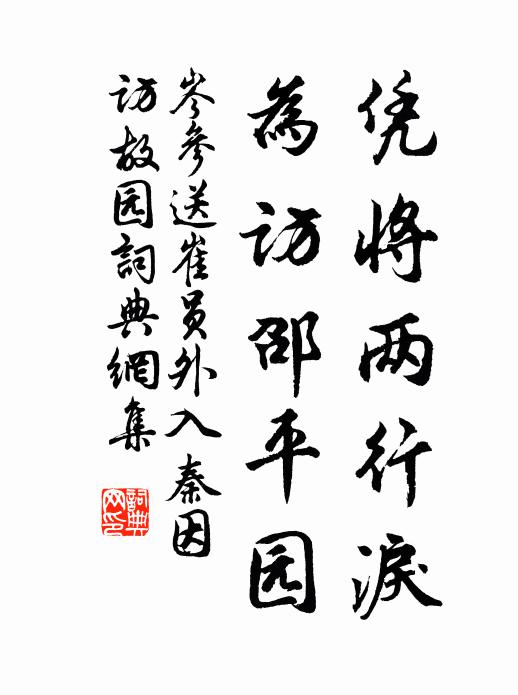 凭将两行淚
為访邵平园
岑參送崔員外入秦因
访故园詞典網集
詞典网印